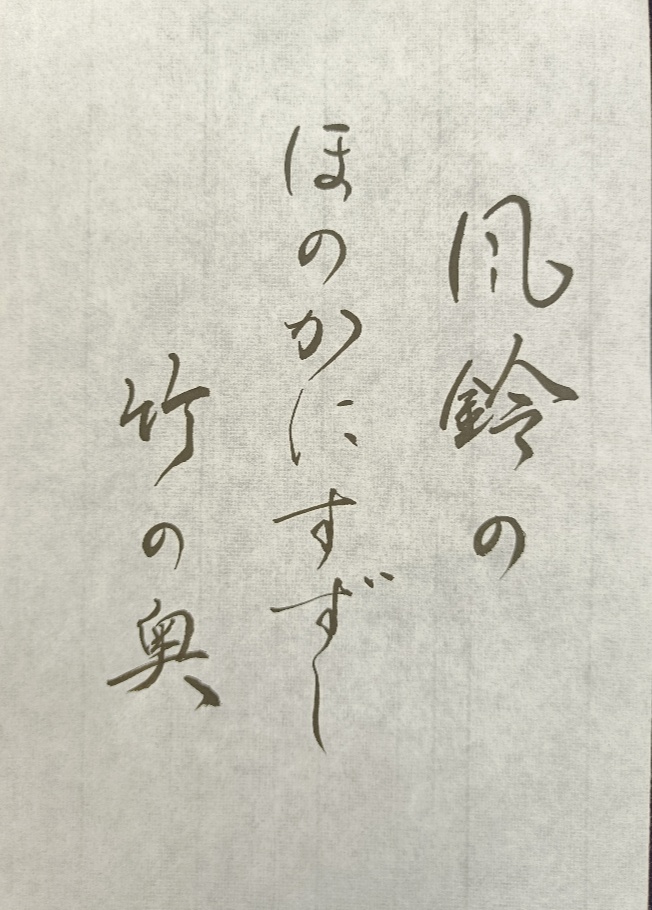 風鈴の
ほのかにすずし
竹の奥